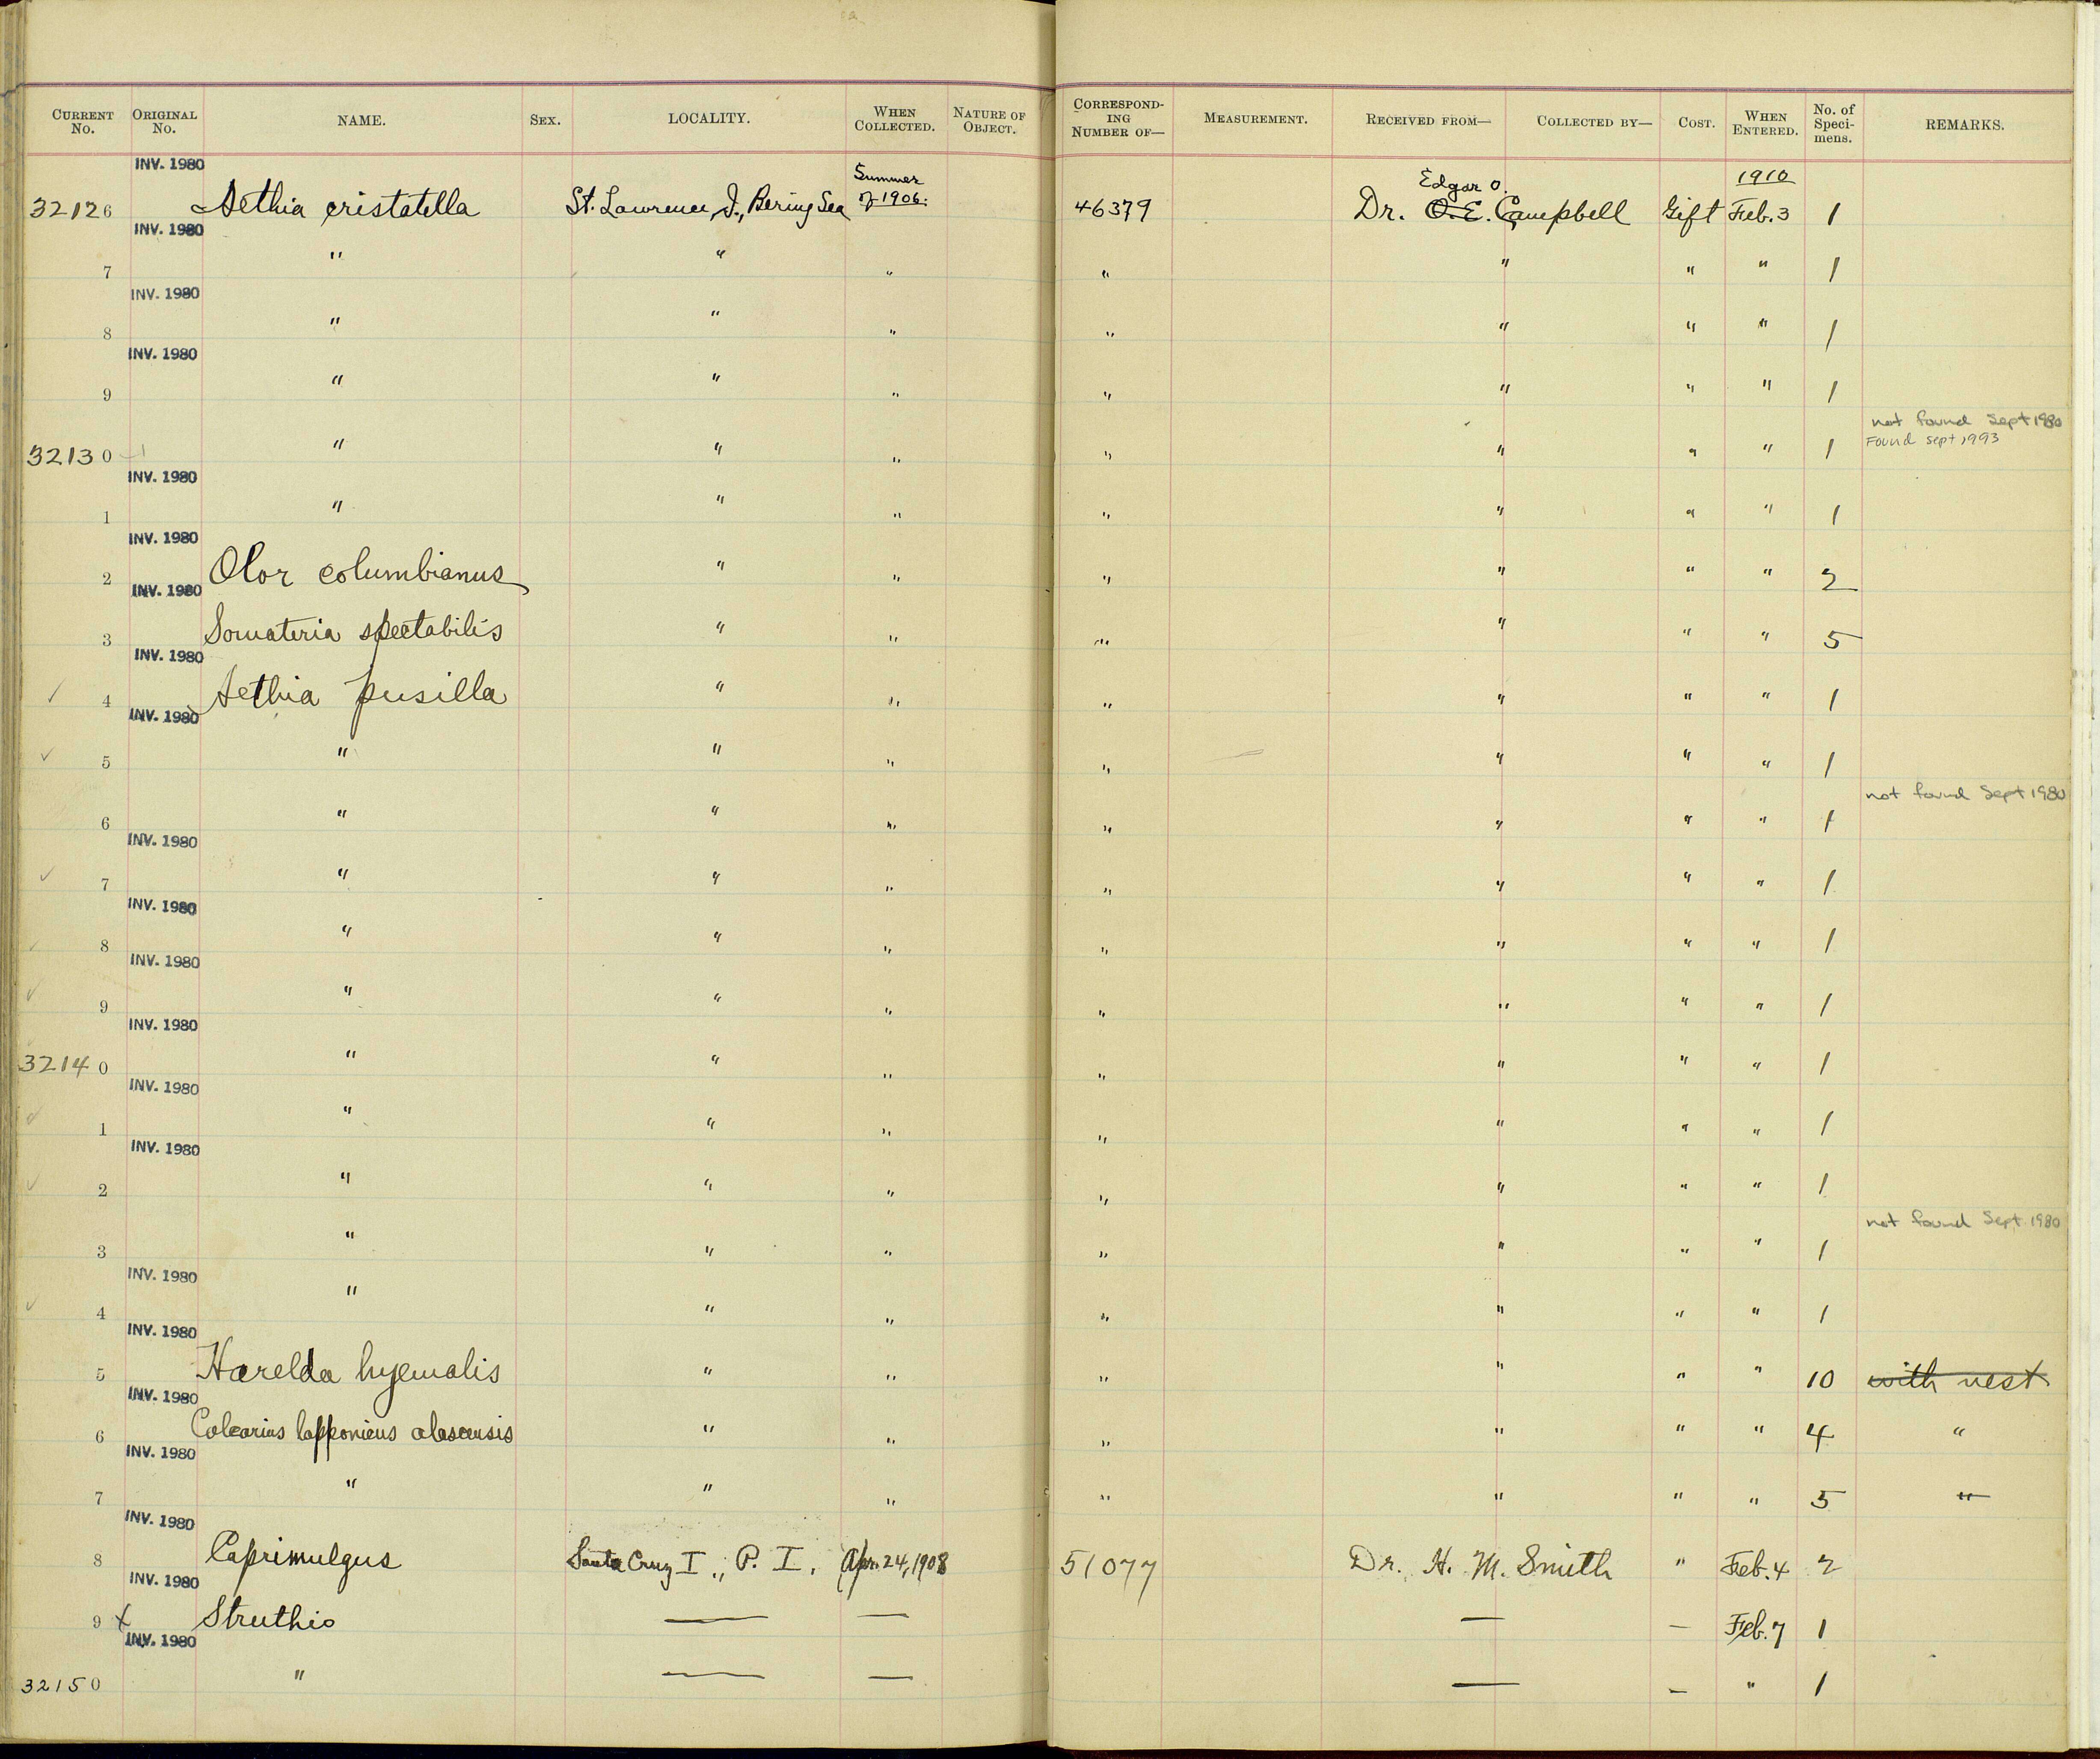 CURRENT No. ORIGINAL No. NAME. SEX. LOCALITY. WHEN COLLECTED. NATURE OF OBJECT. CORRESPONDING NUMBER OF— MEASUREMENT. RECEIVED FROM— COLLECTED BY— COST. WHEN ENTERED. No. of Specimens. REMARKS.
INV. 1980
32126 Aethia cristatella St. Lawrence I., Bering Sea Summer of 1906. 46379 Dr. O. E. Edgar O. Campbell Gift 1910 Feb. 3 1
INV. 1980
7 " " " " " " " 1
INV. 1980
8 " " " " " " " 1
INV. 1980
9 " " " " " " " 1
not found Sept 1980
32130 " " " " " " " 1 Found sept 1993
INV. 1980
1 " " " " " " " 1
INV. 1980
2 Olor columbianus " " " " " " 2
INV. 1980
3 Somateria spectabilis " " " " " " 5
INV. 1980
✓ 4 Aethia pusilla " " " " " " 1
INV. 1980
✓ 5 " " " " " " " 1
not found Sept 1980
6 " " " " " " " 1
INV. 1980
✓ 7 " " " " " " " 1
INV. 1980
✓ 8 " " " " " " " 1
INV. 1980
✓ 9 " " " " " " " 1
INV. 1980
32140 " " " " " " " 1
INV. 1980
✓ 1 " " " " " " " 1
INV. 1980
✓ 2 " " " " " " " 1
not found Sept. 1980
3 " " " " " " " 1
INV. 1980
✓ 4 " " " " " " " 1
INV. 1980
5 Harelda hyemalis " " " " " " 10 with nest
INV. 1980
6 Calcarius lapponicus alascensis " " " " " " 4 "
INV. 1980
7 " " " " " " " 5 "
INV. 1980
8 Caprimulgus Santa Cruz I., P. I. Apr. 24, 1908 51077 Dr. H. M. Smith " Feb. 4 2
INV. 1980
9 x Struthio — — — — Feb. 7 1
INV. 1980
32150 " — — — — " 1